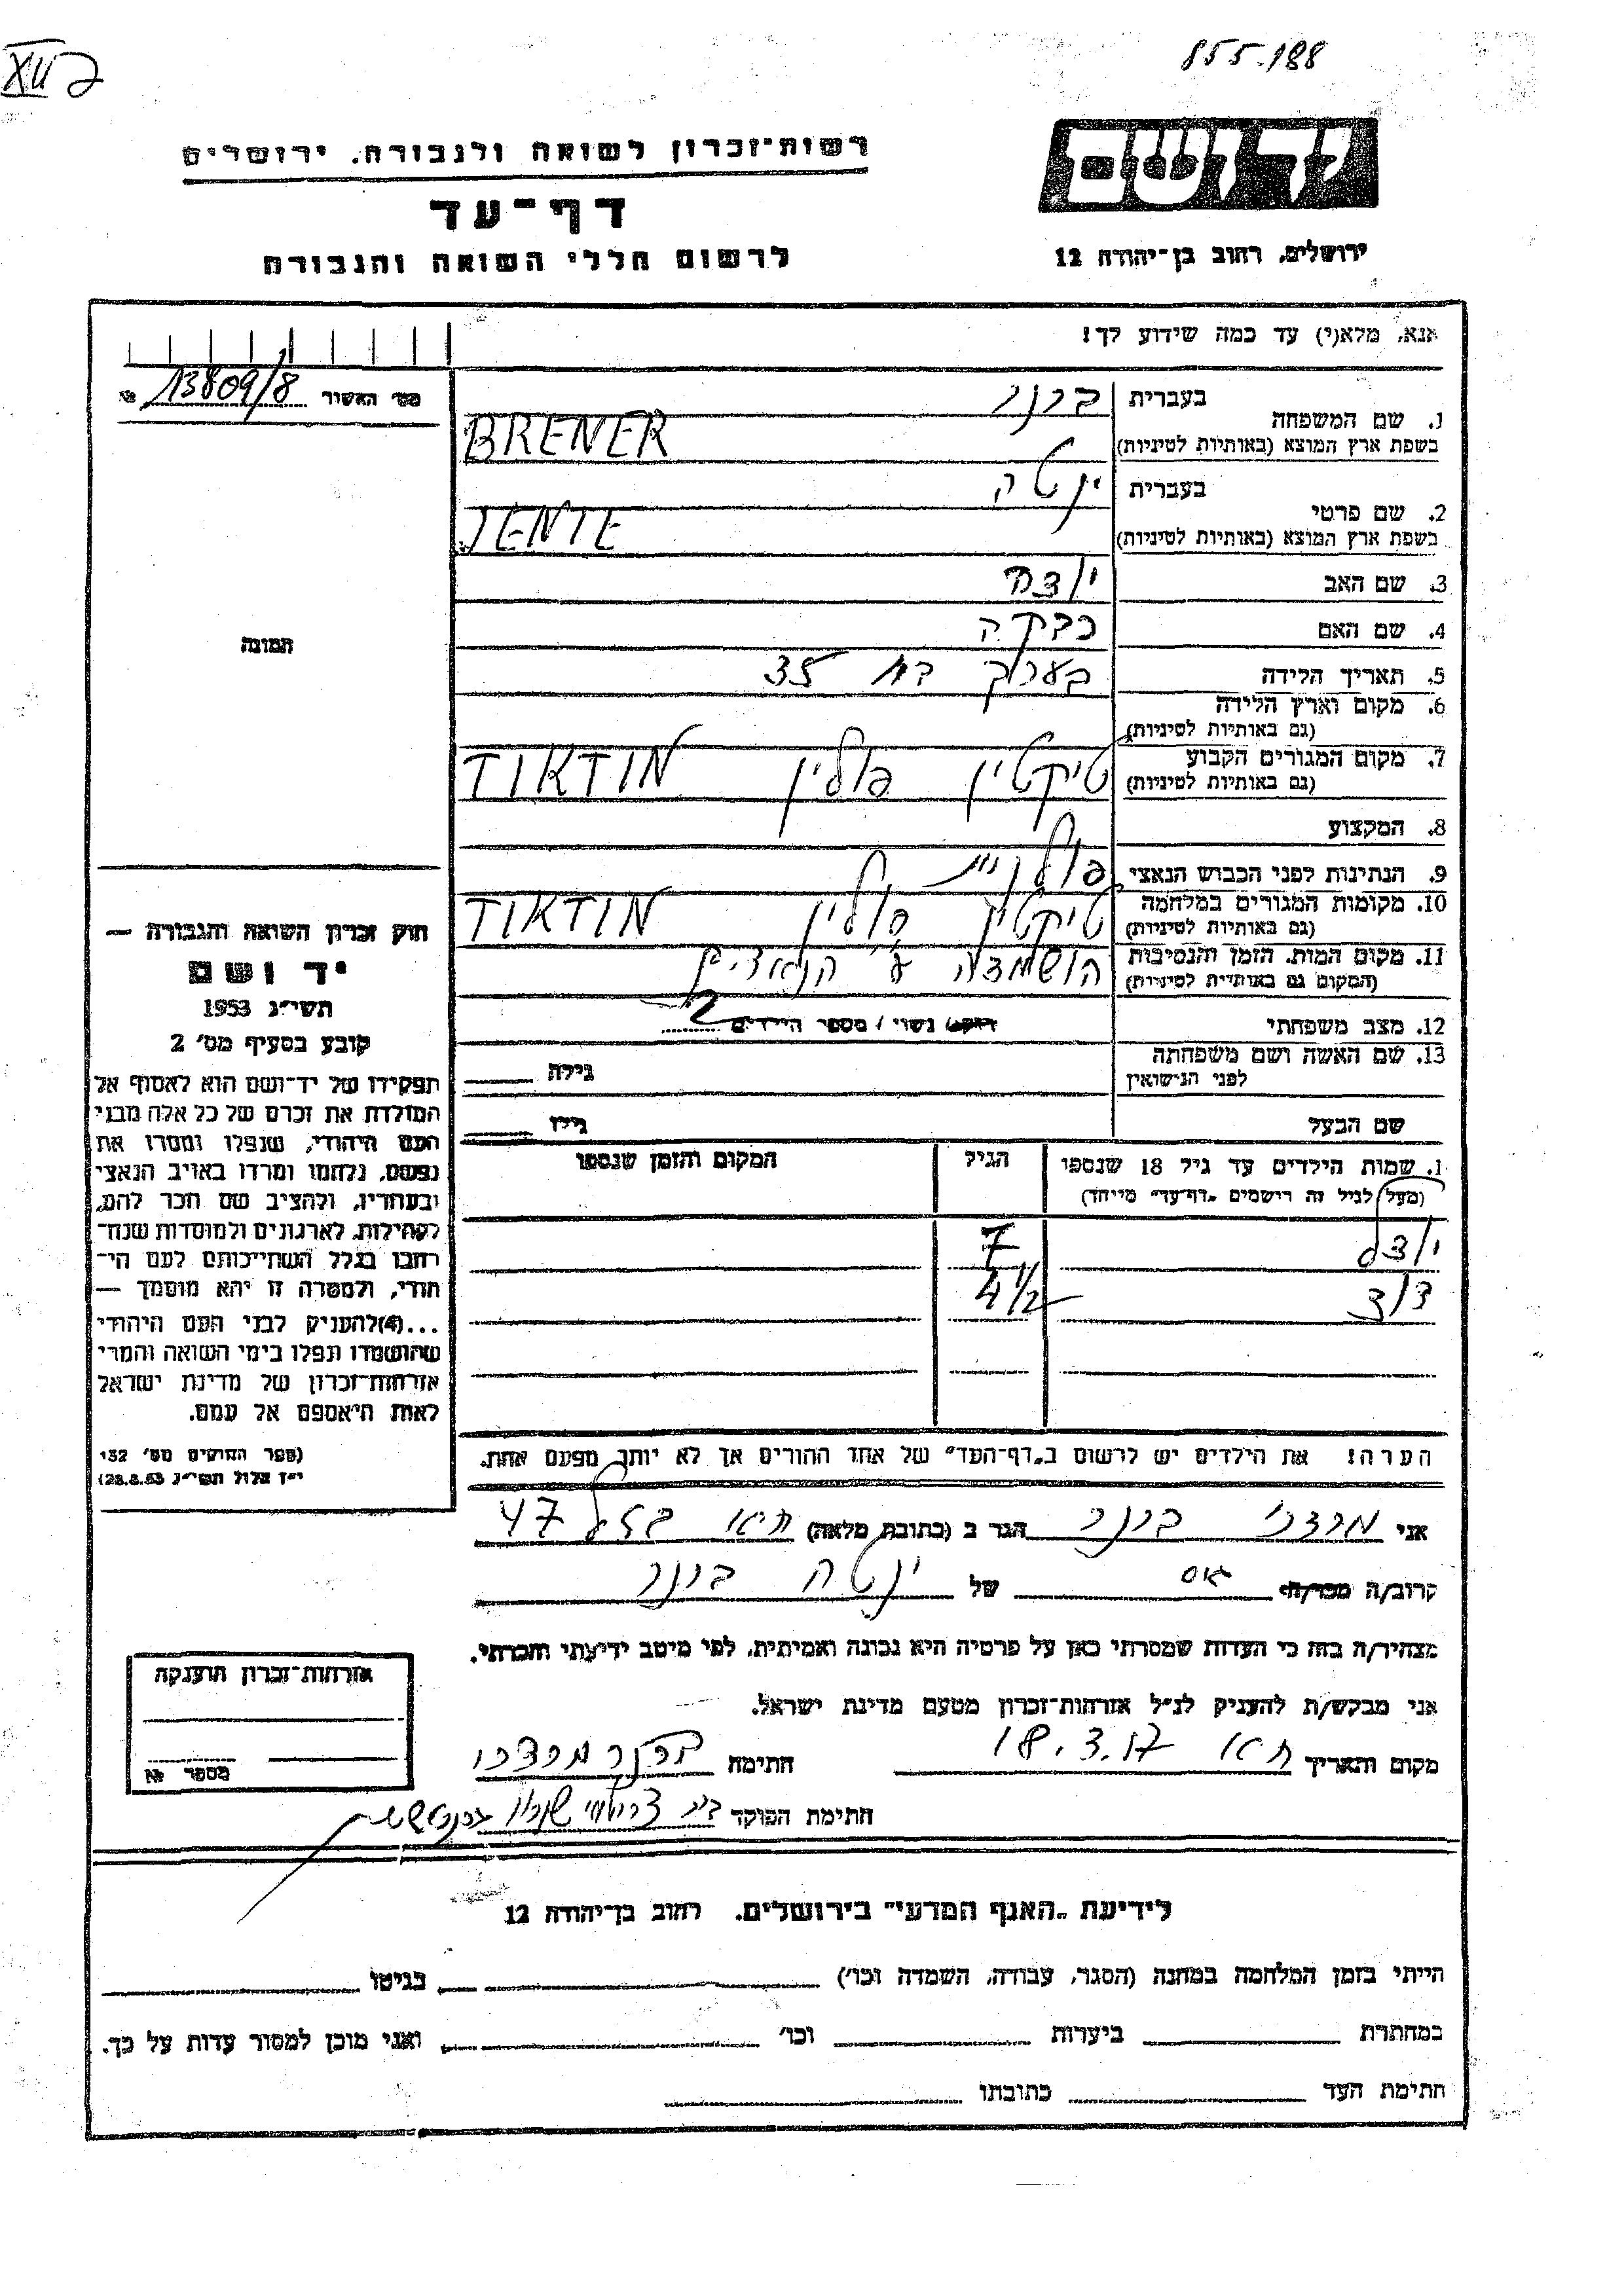 XII ב
855.188
יד ושם
רשות־זכרון לשואה ולגבורה. ירושלים
דף־עד
לרשום חללי השואה והגבורה
ירושלים, רחוב בן־יהודה 12
אנא, מלא(י) עד כמה שידוע לך!
מס׳ האשור 13809/8
1. שם המשפחה
בעברית ברנר
בשפת ארץ המוצא (באותיות לטיניות) BRENER
2. שם פרטי
בעברית ינטה
בשפת ארץ המוצא (באותיות לטיניות) JENTE
3. שם האב
4. שם האם רבקה
5. תאריך הלידה בערך בת 35
6. מקום וארץ הלידה
(גם באותיות לטיניות)
7. מקום המגורים הקבוע טיקטין פולין TIKTIN
(גם באותיות לטיניות)
8. המקצוע
9. הנתינות לפני הכבוש הנאצי פולנית
10. מקומות המגורים במלחמה טיקטין פולין TIKTIN
(גם באותיות לטיניות)
11. מקום המות, הזמן והנסיבות הושמדה ע״י הנאצים
(המקום גם באותיות לטיניות)
12. מצב משפחתי רווק/ נשוי / מספר הילדים 2
13. שם האשה ושם משפחתה
לפני הנישואין
גילה
שם הבעל גילו
1. שמות הילדים עד גיל 18 שנספו הגיל המקום והזמן שנספו
(מעל לגיל זה רישמים „דף־עד״ מייחד)
7
4 1/2
הערה! את הילדים יש לרשום ב„דף־העד״ של אחד ההורים אך לא יותר מפעם אחת.
תמונה
חוק זכרון השואה והגבורה —
יד ושם
תשי״ג 1953
קובע בסעיף מס׳ 2
תפקידו של יד־ושם הוא לאסוף אל
המולדת את זכרם של כל אלה מבני
העם היהודי, שנפלו ומסרו את
נפשם, נלחמו ומרדו באויב הנאצי
ובעוזריו, ולהציב שם וזכר להם,
לקהילות, לארגונים ולמוסדות שנח־
רבו בגלל השתייכותם לעם הי־
הודי, ולמטרה זו יהא מוסמך —
...(4)להעניק לבני העם היהודי
שהושמדו ונפלו בימי השואה והמרי
אזרחות־זכרון של מדינת ישראל
לאות היאספם אל עמם.
(ספר החוקים מס׳ 132
י״ז אלול תשי״ג 28.8.53)
אני מרדכי ברנר הגר ב (כתובת מלאה) 47
קרוב/ה מכר/ה גיס של ינטה ברנר
מצהיר/ה בזה כי העדות שמסרתי כאן על פרטיה היא נכונה ואמיתית, לפי מיטב ידיעתי והכרתי.
אני מבקש/ת להעניק לנ״ל אזרחות־זכרון מטעם מדינת ישראל.
מקום והתאריך ת״א 18.3.57 חתימה ברנר מרדכי
חתימת הפוקד
אזרחות־זכרון הוענקה
מספר №
לידיעת „האגף המדעי״ בירושלים. רחוב בן־יהודה 12
הייתי בזמן המלחמה במחנה (הסגר, עבודה, השמדה וכו׳) בגיטו
במחתרת ביערות וכו׳ ואני מוכן למסור עדות על כך.
חתימת העד כתובתו